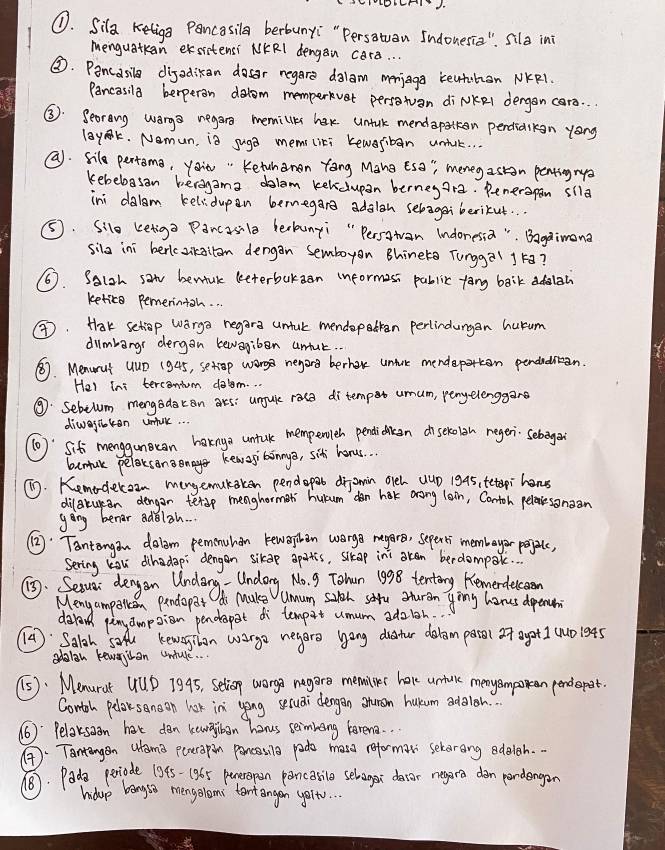 ①. Sila Ketiga Pancasila berbunyi "Persatuan Indonesia". Sila ini
menguatkan eksistensi NKRI dengan cara...
②. Pancasila dijadikan dasar negara dalam menjaga keutuhan NKRI.
Pancasila berperan dalam memperkuat persatuan di NKRI dengan cara...
③. Seorang warga negara memiliki hak untuk mendapatkan pendidikan yang
layak. Namun, ia juga memiliki kewajiban untuk...
④. Sila pertama, yaitu "Ketuhanan Yang Maha Esa", menegaskan pentingnya
kebebasan beragama dalam kehidupan bernegara. Penerapan sila
ini dalam kehidupan bernegara adalah sebagai berikut...
⑤. Sila ketiga Pancasila berbunyi "Persatuan Indonesia". Bagaimana
sila ini berkaitan dengan semboyan Bhineka Tunggal Ika?
⑥. Salah satu bentuk keterbukaan informasi publik yang baik adalah
ketika Pemerintah...
⑦. Hak setiap warga negara untuk mendapatkan perlindungan hukum
diimbangi dengan kewajiban untuk...
⑧. Menurut UUD 1945, setiap warga negara berhak untuk mendapatkan pendidikan.
Hal ini tercantum dalam...
⑨. Sebelum mengadakan aksi unjuk rasa di tempat umum, penyelenggara
diwajibkan untuk...
⑩. Siti menggunakan haknya untuk memperoleh pendidikan di sekolah negeri. Sebagai
bentuk pelaksanaannya kewajibannya, siti harus...
⑪. Kemerdekaan mengemukakan pendapat dijamin oleh UUD 1945, tetapi harus
dilakukan dengan tetap menghormati hukum dan hak orang lain, Contoh pelaksanaan
yang benar adalah...
⑫. Tantangan dalam pemenuhan kewajiban warga negara, seperti membayar pajak,
sering kali dihadapi dengan sikap apatis, sikap ini akan berdampak...
⑬. Sesuai dengan Undang-Undang No.9 Tahun 1998 tentang Kemerdekaan
Menyampaikan pendapat di Muka Umum, salah satu aturan yang harus dipenuhi
dalam penyampaian pendapat di tempat umum adalah...
⑭. Salah satu kewajiban warga negara yang diatur dalam pasal 27 ayat 1 UUD 1945
adalah kewajiban untuk...
⑮. Menurut UUD 1945, setiap warga negara memiliki hak untuk menyampaikan pendapat.
Contoh pelaksanaan hak ini yang sesuai dengan aturan hukum adalah...
⑯. Pelaksaan hak dan kewajiban harus seimbang karena...
⑰. Tantangan utama penerapan Pancasila pada masa reformasi sekarang adalah...
⑱. Pada periode 1945-1965 penerapan pancasila sebagai dasar negara dan pandangan
hidup bangsa mengalami tantangan yaitu...